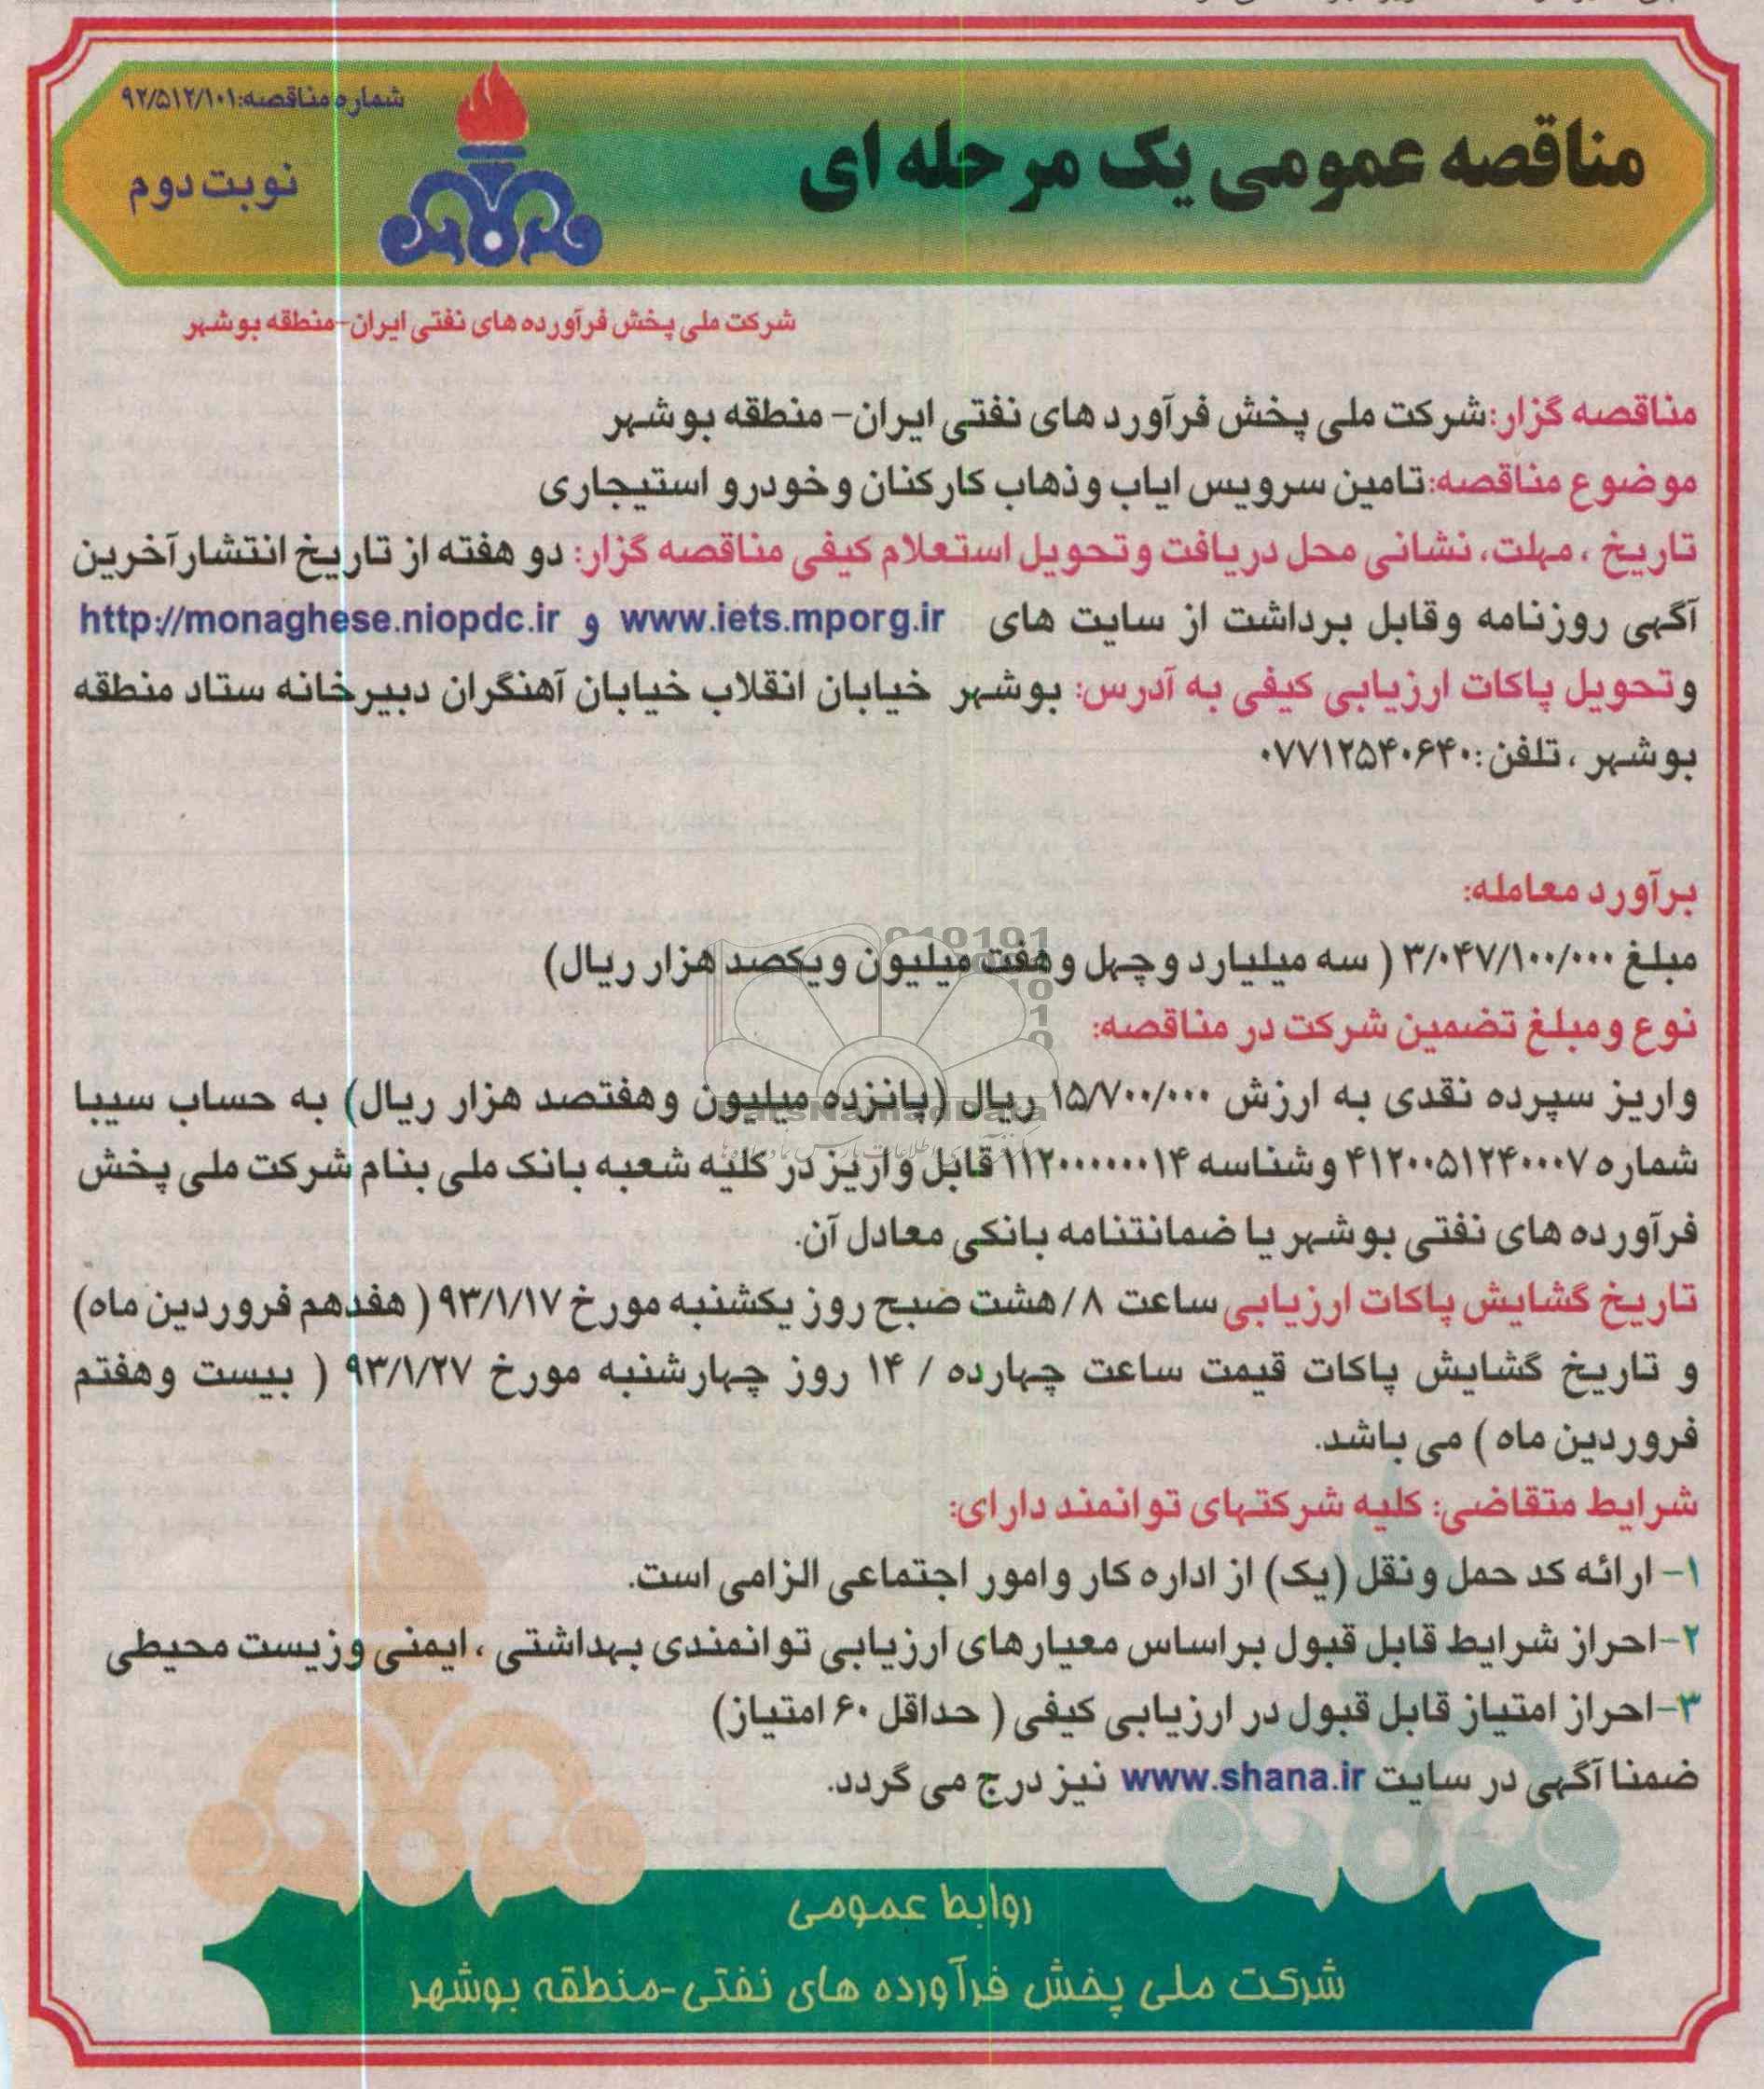 مناقصه عمومی یک مرحله ای
شماره مناقصه:۹۲/۵۱۲/۱۰۱
نوبت دوم
شرکت ملی پخش فرآورده های نفتی ایران-منطقه بوشهر
مناقصه گزار:شرکت ملی پخش فرآورد های نفتی ایران- منطقه بوشهر
موضوع مناقصه:تامین سرویس ایاب وذهاب کارکنان وخودرو استیجاری
تاریخ ، مهلت، نشانی محل دریافت وتحویل استعلام کیفی مناقصه گزار: دو هفته از تاریخ انتشارآخرین
آگهی روزنامه وقابل برداشت از سایت های www.iets.mporg.ir و http://monaghese.niopdc.ir
وتحویل پاکات ارزیابی کیفی به آدرس: بوشهر خیابان انقلاب خیابان آهنگران دبیرخانه ستاد منطقه
بوشهر ، تلفن:۰۷۷۱۲۵۴۰۶۴۰
برآورد معامله:
مبلغ ۳/۰۴۷/۱۰۰/۰۰۰ ( سه میلیارد وچهل وهفت میلیون ویکصد هزار ریال)
نوع ومبلغ تضمین شرکت در مناقصه:
واریز سپرده نقدی به ارزش ۱۵/۷۰۰/۰۰۰ ریال (پانزده میلیون وهفتصد هزار ریال) به حساب سیبا
شماره ۴۱۲۰۰۵۱۲۴۰۰۰۷ وشناسه ۱۱۲۰۰۰۰۰۰۱۴ قابل واریز در کلیه شعبه بانک ملی بنام شرکت ملی پخش
فرآورده های نفتی بوشهر یا ضمانتنامه بانکی معادل آن.
تاریخ گشایش پاکات ارزیابی ساعت ۸/هشت صبح روز یکشنبه مورخ ۹۳/۱/۱۷ ( هفدهم فروردین ماه)
و تاریخ گشایش پاکات قیمت ساعت چهارده / ۱۴ روز چهارشنبه مورخ ۹۳/۱/۲۷ ( بیست وهفتم
فروردین ماه ) می باشد.
شرایط متقاضی: کلیه شرکتهای توانمند دارای:
۱- ارائه کد حمل ونقل (یک) از اداره کار وامور اجتماعی الزامی است.
۲-احراز شرایط قابل قبول براساس معیارهای ارزیابی توانمندی بهداشتی ، ایمنی وزیست محیطی
۳-احراز امتیاز قابل قبول در ارزیابی کیفی ( حداقل ۶۰ امتیاز)
ضمنا آگهی در سایت www.shana.ir نیز درج می گردد.
روابط عمومی
شرکت ملی پخش فرآورده های نفتی-منطقه بوشهر